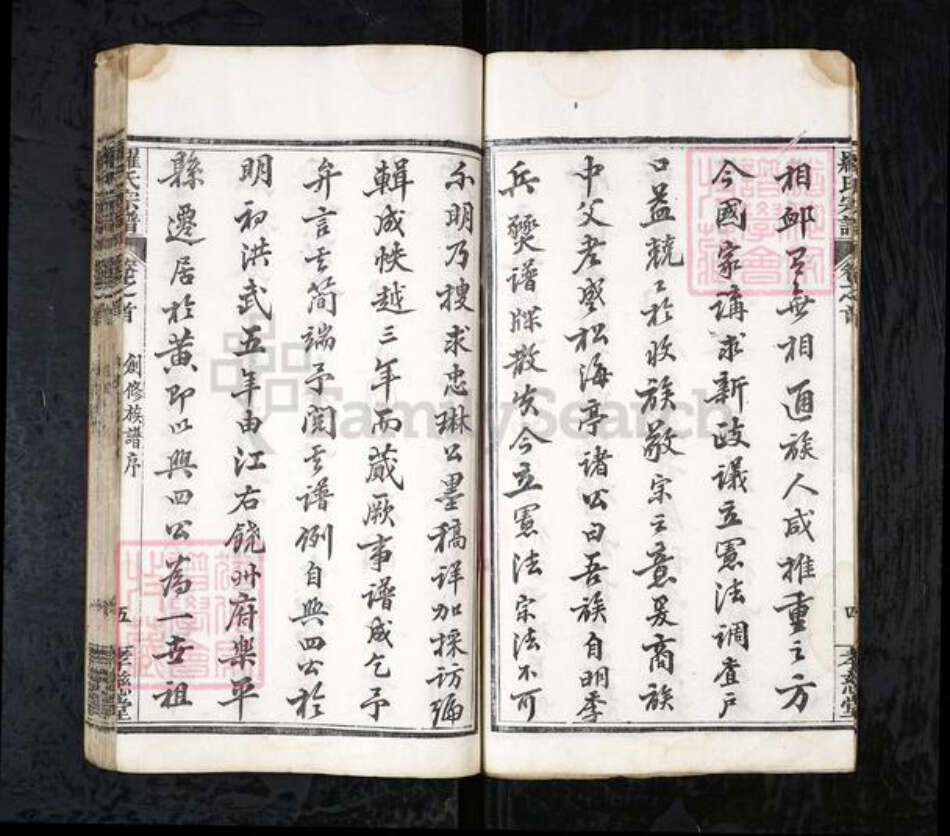 相邮有無相通族人咸推重之方
今國家講求新政議立憲法調查戶
口益兢兢於收族敬宗之意爰商族
中父老盛松海亭諸公曰吾族自明季
兵燹譜牒散失今立憲法宗法不可
不明乃搜求忠琳公墨稿詳加採訪編
輯成帙越三年而蕆厥事譜成乞予
弁言其簡端予閱其譜例自興四公於
明初洪武五年由江右饒州府樂平
縣遷居於黃即以興四公為一世祖
氏宗譜
卷之首
四
孝慈堂
氏宗譜
卷之首
創修族譜序
五
孝慈堂
FamilySearch